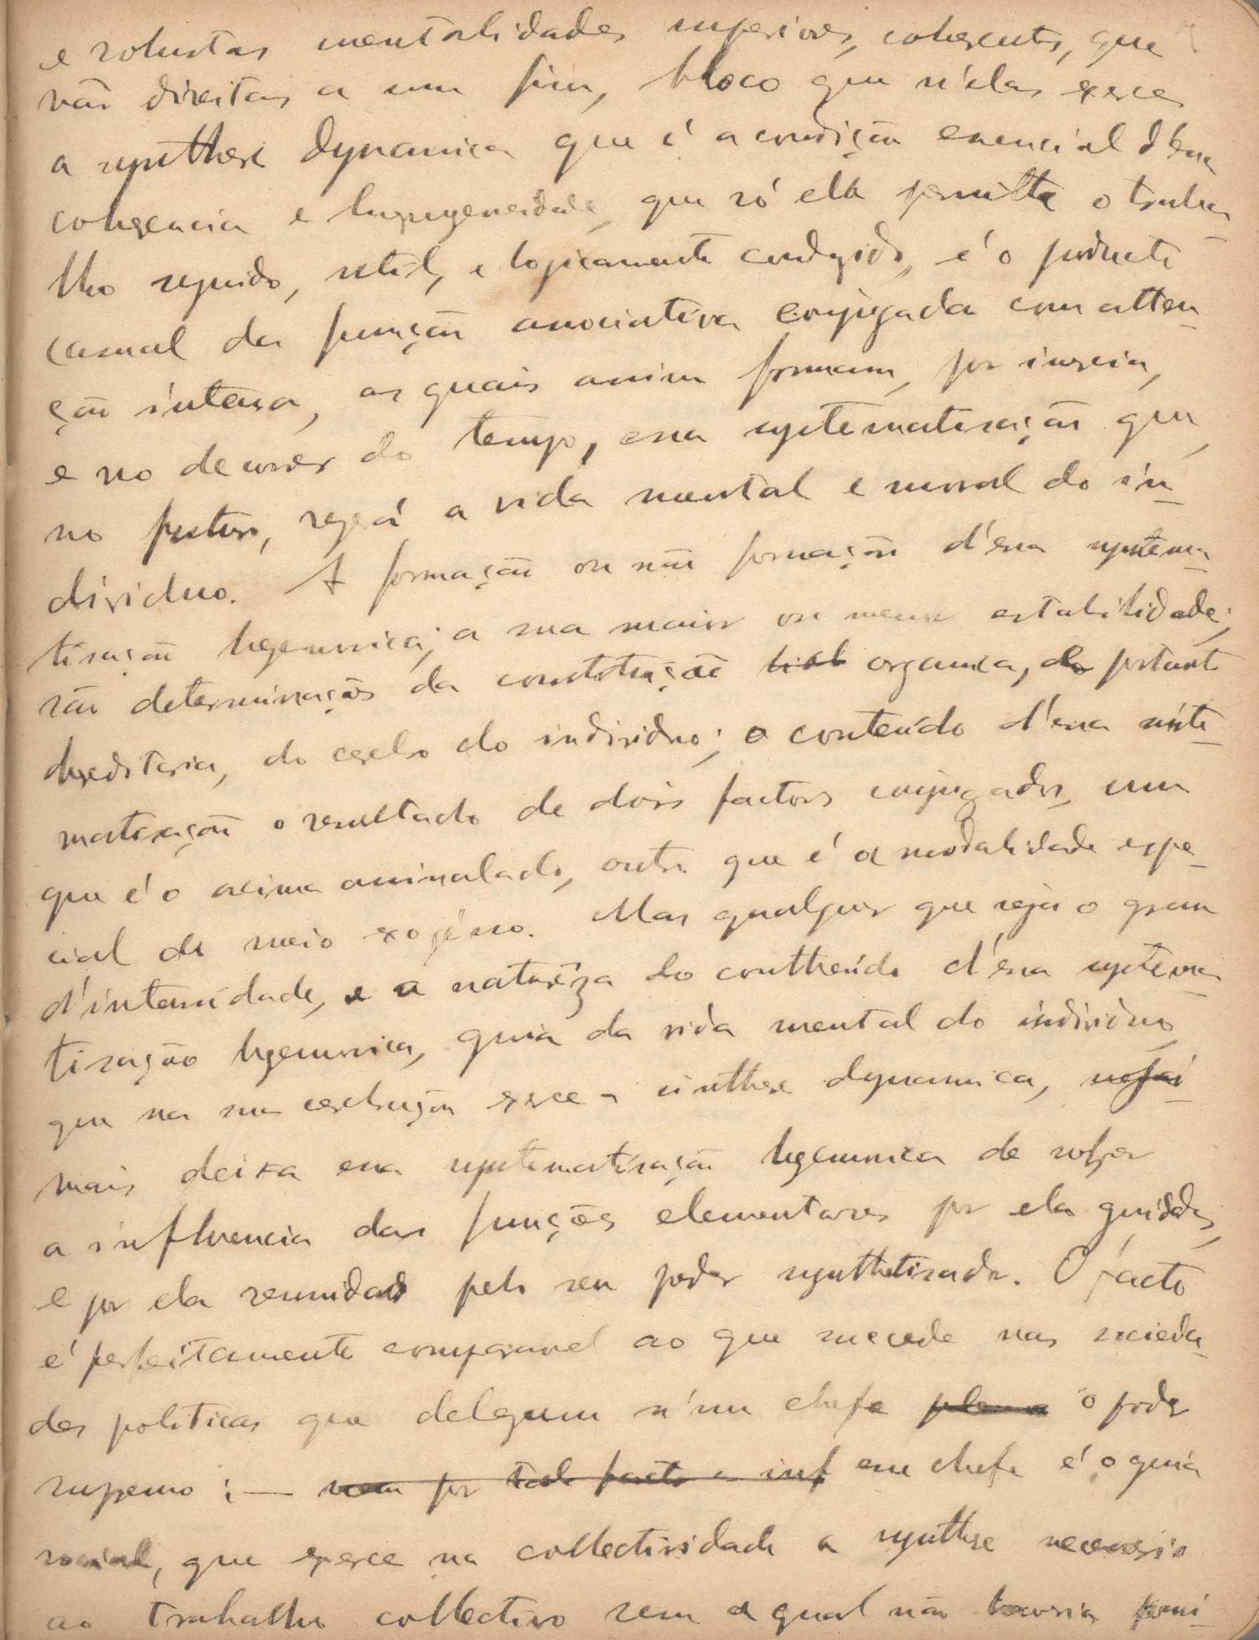 e robustas mentalidades superiores, coherentes, que
vão direitas a um fim, bloco que n'elas exerce
a synthese dynamica que é a condição essencial d'essa
coherencia e homogeneidade, que só ella permitte o traba-
lho seguido, util, e logicamente conduzido, é o producto
casual da funcção associativa conjugada com atten-
ção intensa, as quais assim formam, por inercia,
e no decorrer do tempo, essa systematisação que,
no futuro, regerá a vida mental e moral do in-
dividuo. A formação ou não formação d'essa systema-
tisação hegemonica; a sua maior ou menor estabilidade;
são determinações da constituição organica, portanto
hereditaria, do cerebro do individuo; o conteúdo d'essa siste-
matisação o resultado de dois factores conjugados, um
que é o acima assinalado, outro que é a modalidade espe-
cial do meio exogeno. Mas qualquer que seja o grau
d'intensidade, e a natureza do contheúdo d'essa systema-
tisação hegemonica, guia da vida mental do individuo,
que na sua cerebração exerce a sinthese dynamica,
mais deixa essa systematisação hegemonica de sofrer
a influencia das funcções elementares por ela guiadas,
e por ela reunidas pelo seu poder synthetisador. O facto
é perfeitamente comparavel ao que succede nas socieda-
des politicas que delegam n'um chefe o poder
supremo: — esse chefe é o guia
social, que exerce na collectividade a synthese necessaria
ao trabalho collectivo sem a qual não haveria